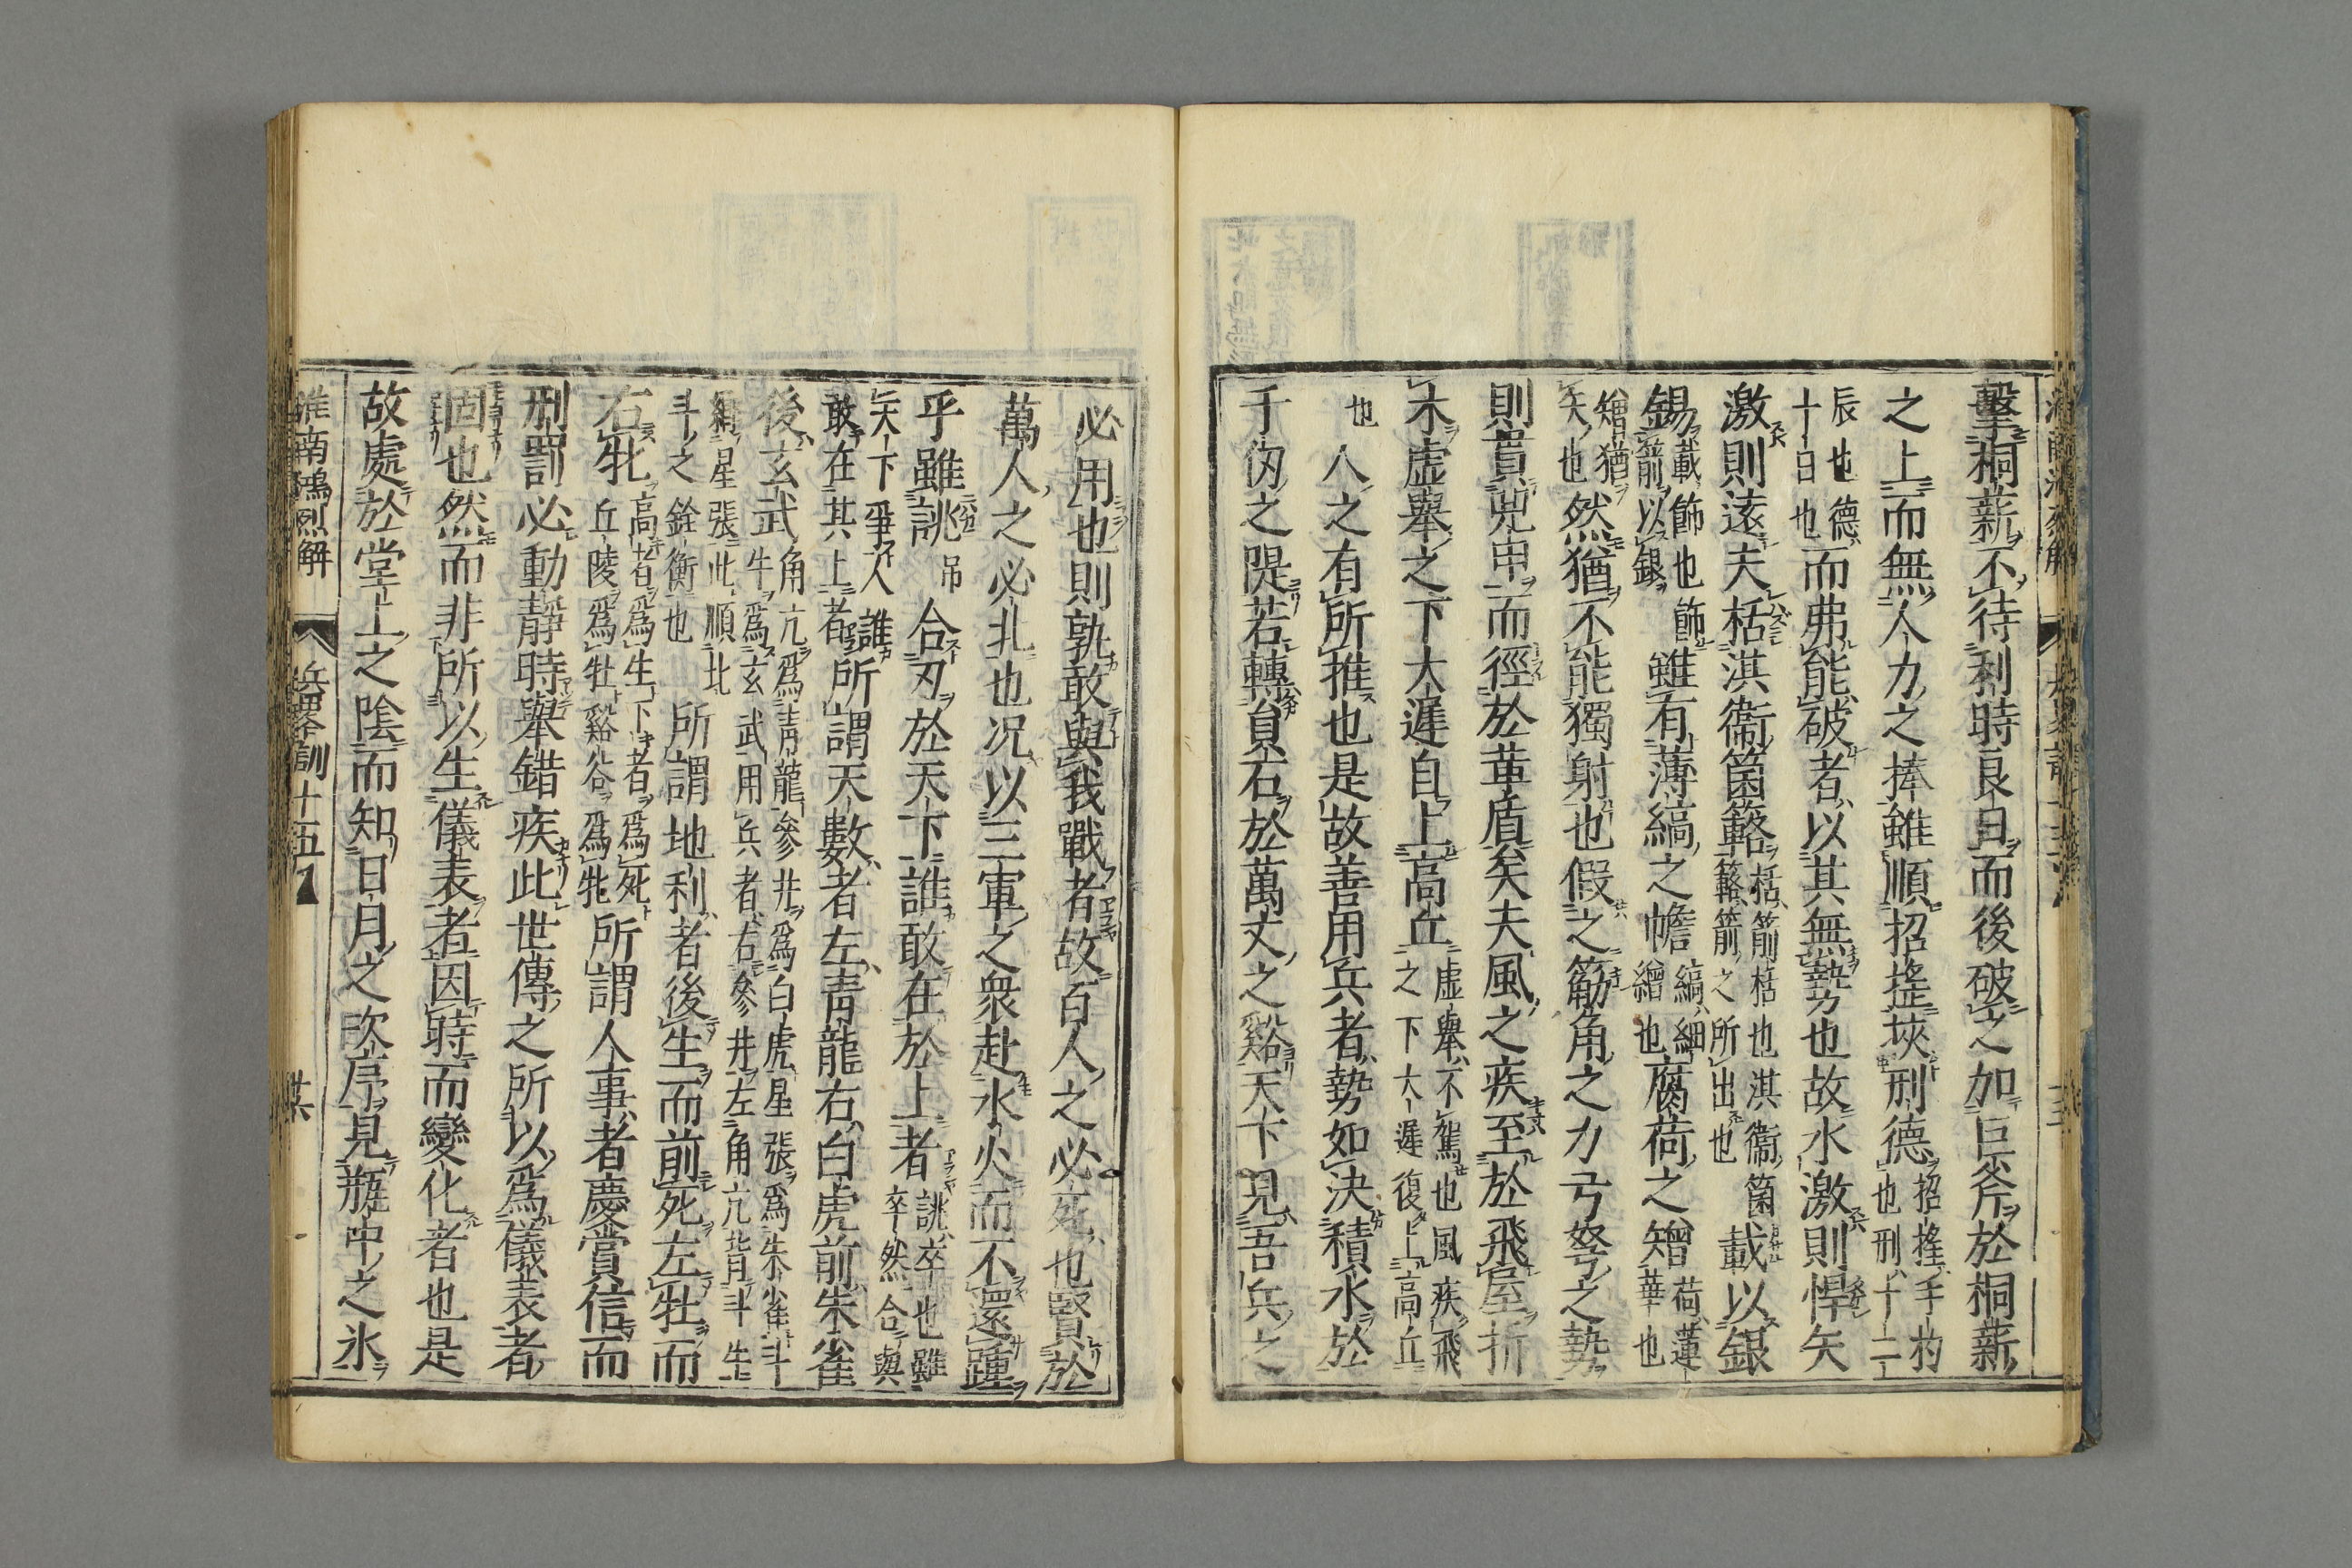 擊桐薪不待利時良日而後破之加巨斧於桐薪
之上而無人力之捧雖順招搖挾刑德招搖斗杓也刑十二
辰也德十日也而弗能破者以其無勢也故水激則悍矢
激則遠夫栝淇衞箘簵栝箭栝也淇衞箘簵箭之所出也載以銀
錫載飾也飾箭以銀雖有薄縞之幨縞細繒也腐荷之矰荷蓮華也
矰猶矢也然猶不能獨射也假之筋角之力弓弩之勢
則貫兕甲而徑於革盾矣夫風之疾至於飛屋折
木虛舉之下大遲自上高丘虛舉不駕也風疾飛之下大遲復上高丘
也人之有所推也是故善用兵者勢如決積水於
千仞之隄若轉員石於萬丈之谿天下見吾兵之
必用也則孰敢與我戰者故百人之必死也賢於
萬人之必北也況以三軍之衆赴水火而不還踵
乎雖誂吊合刃於天下誰敢在於上者誂卒也雖卒然合與
天下爭人誰敢在其上者所謂天數者左青龍右白虎前朱雀
後玄武角亢爲青龍參井爲白虎星張爲朱雀斗牛爲玄武用兵者右參井左角亢背斗牛
向星張此順北斗之銓衡也所謂地利者後生而前死左牡而
右牝高者爲生下者爲死丘陵爲牡谿谷爲牝所謂人事者慶賞信而
刑罰必動靜時舉錯疾此世傳之所以爲儀表者
固也然而非所以生儀表者因時而變化者也是
故處於堂上之陰而知日月之次序見瓶中之氷
淮南鴻烈解 兵畧訓十五